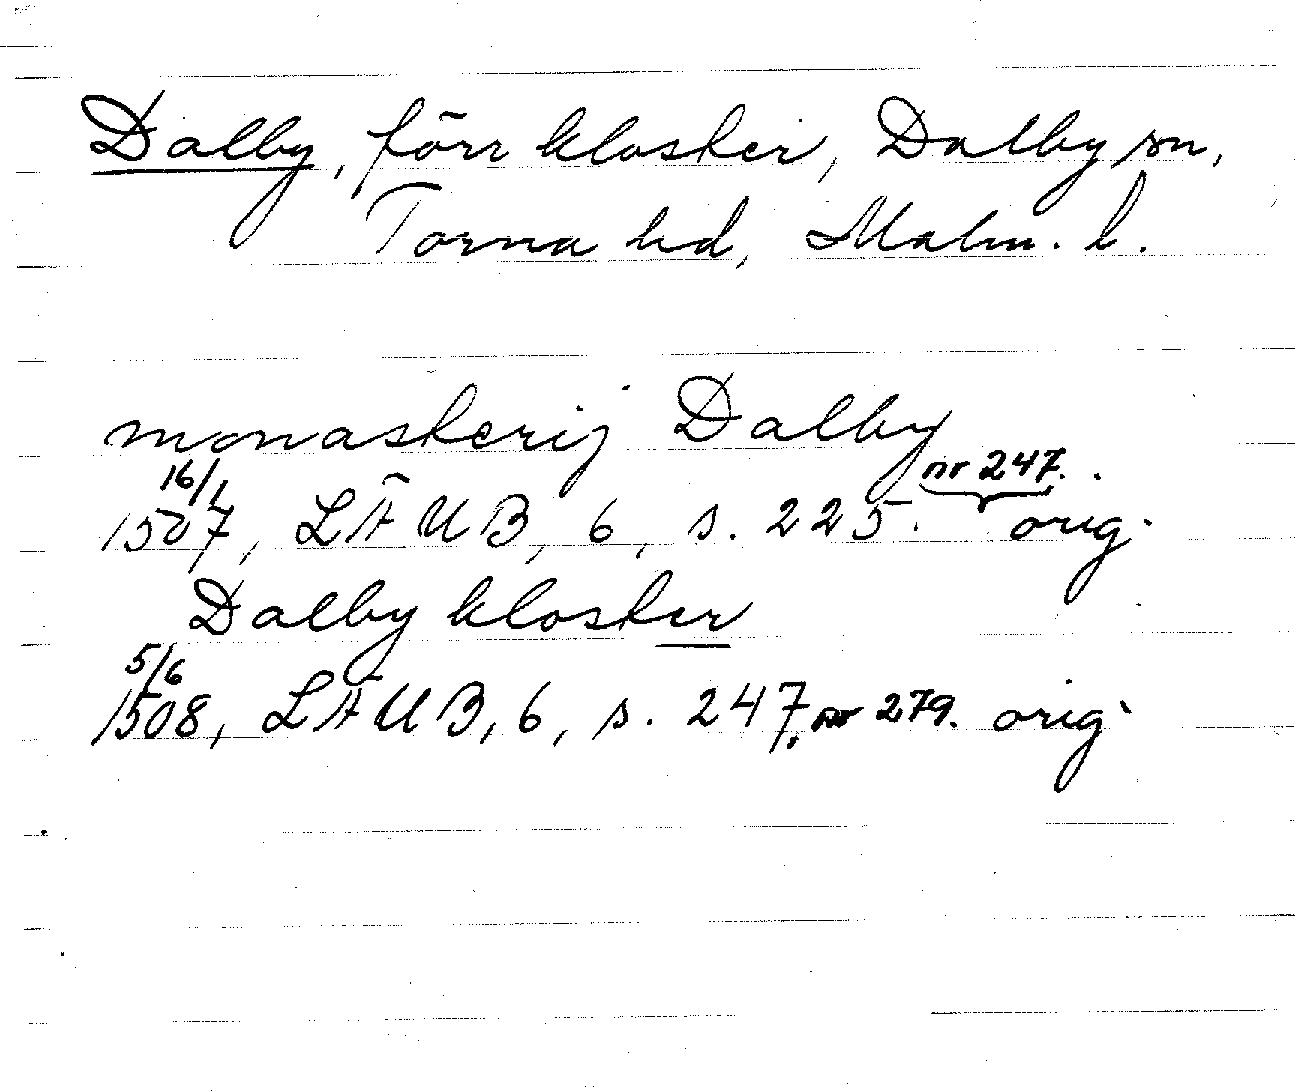 Dalby, förr kloster, Dalby sn,
Torna hd, Malm. l.
monasterij Dalby
16/1 nr 247.
1507, LÄUB, 6, s. 225. orig.
Dalby kloster
5/6
1508, LÄUB, 6, s. 247, nr 279. orig.